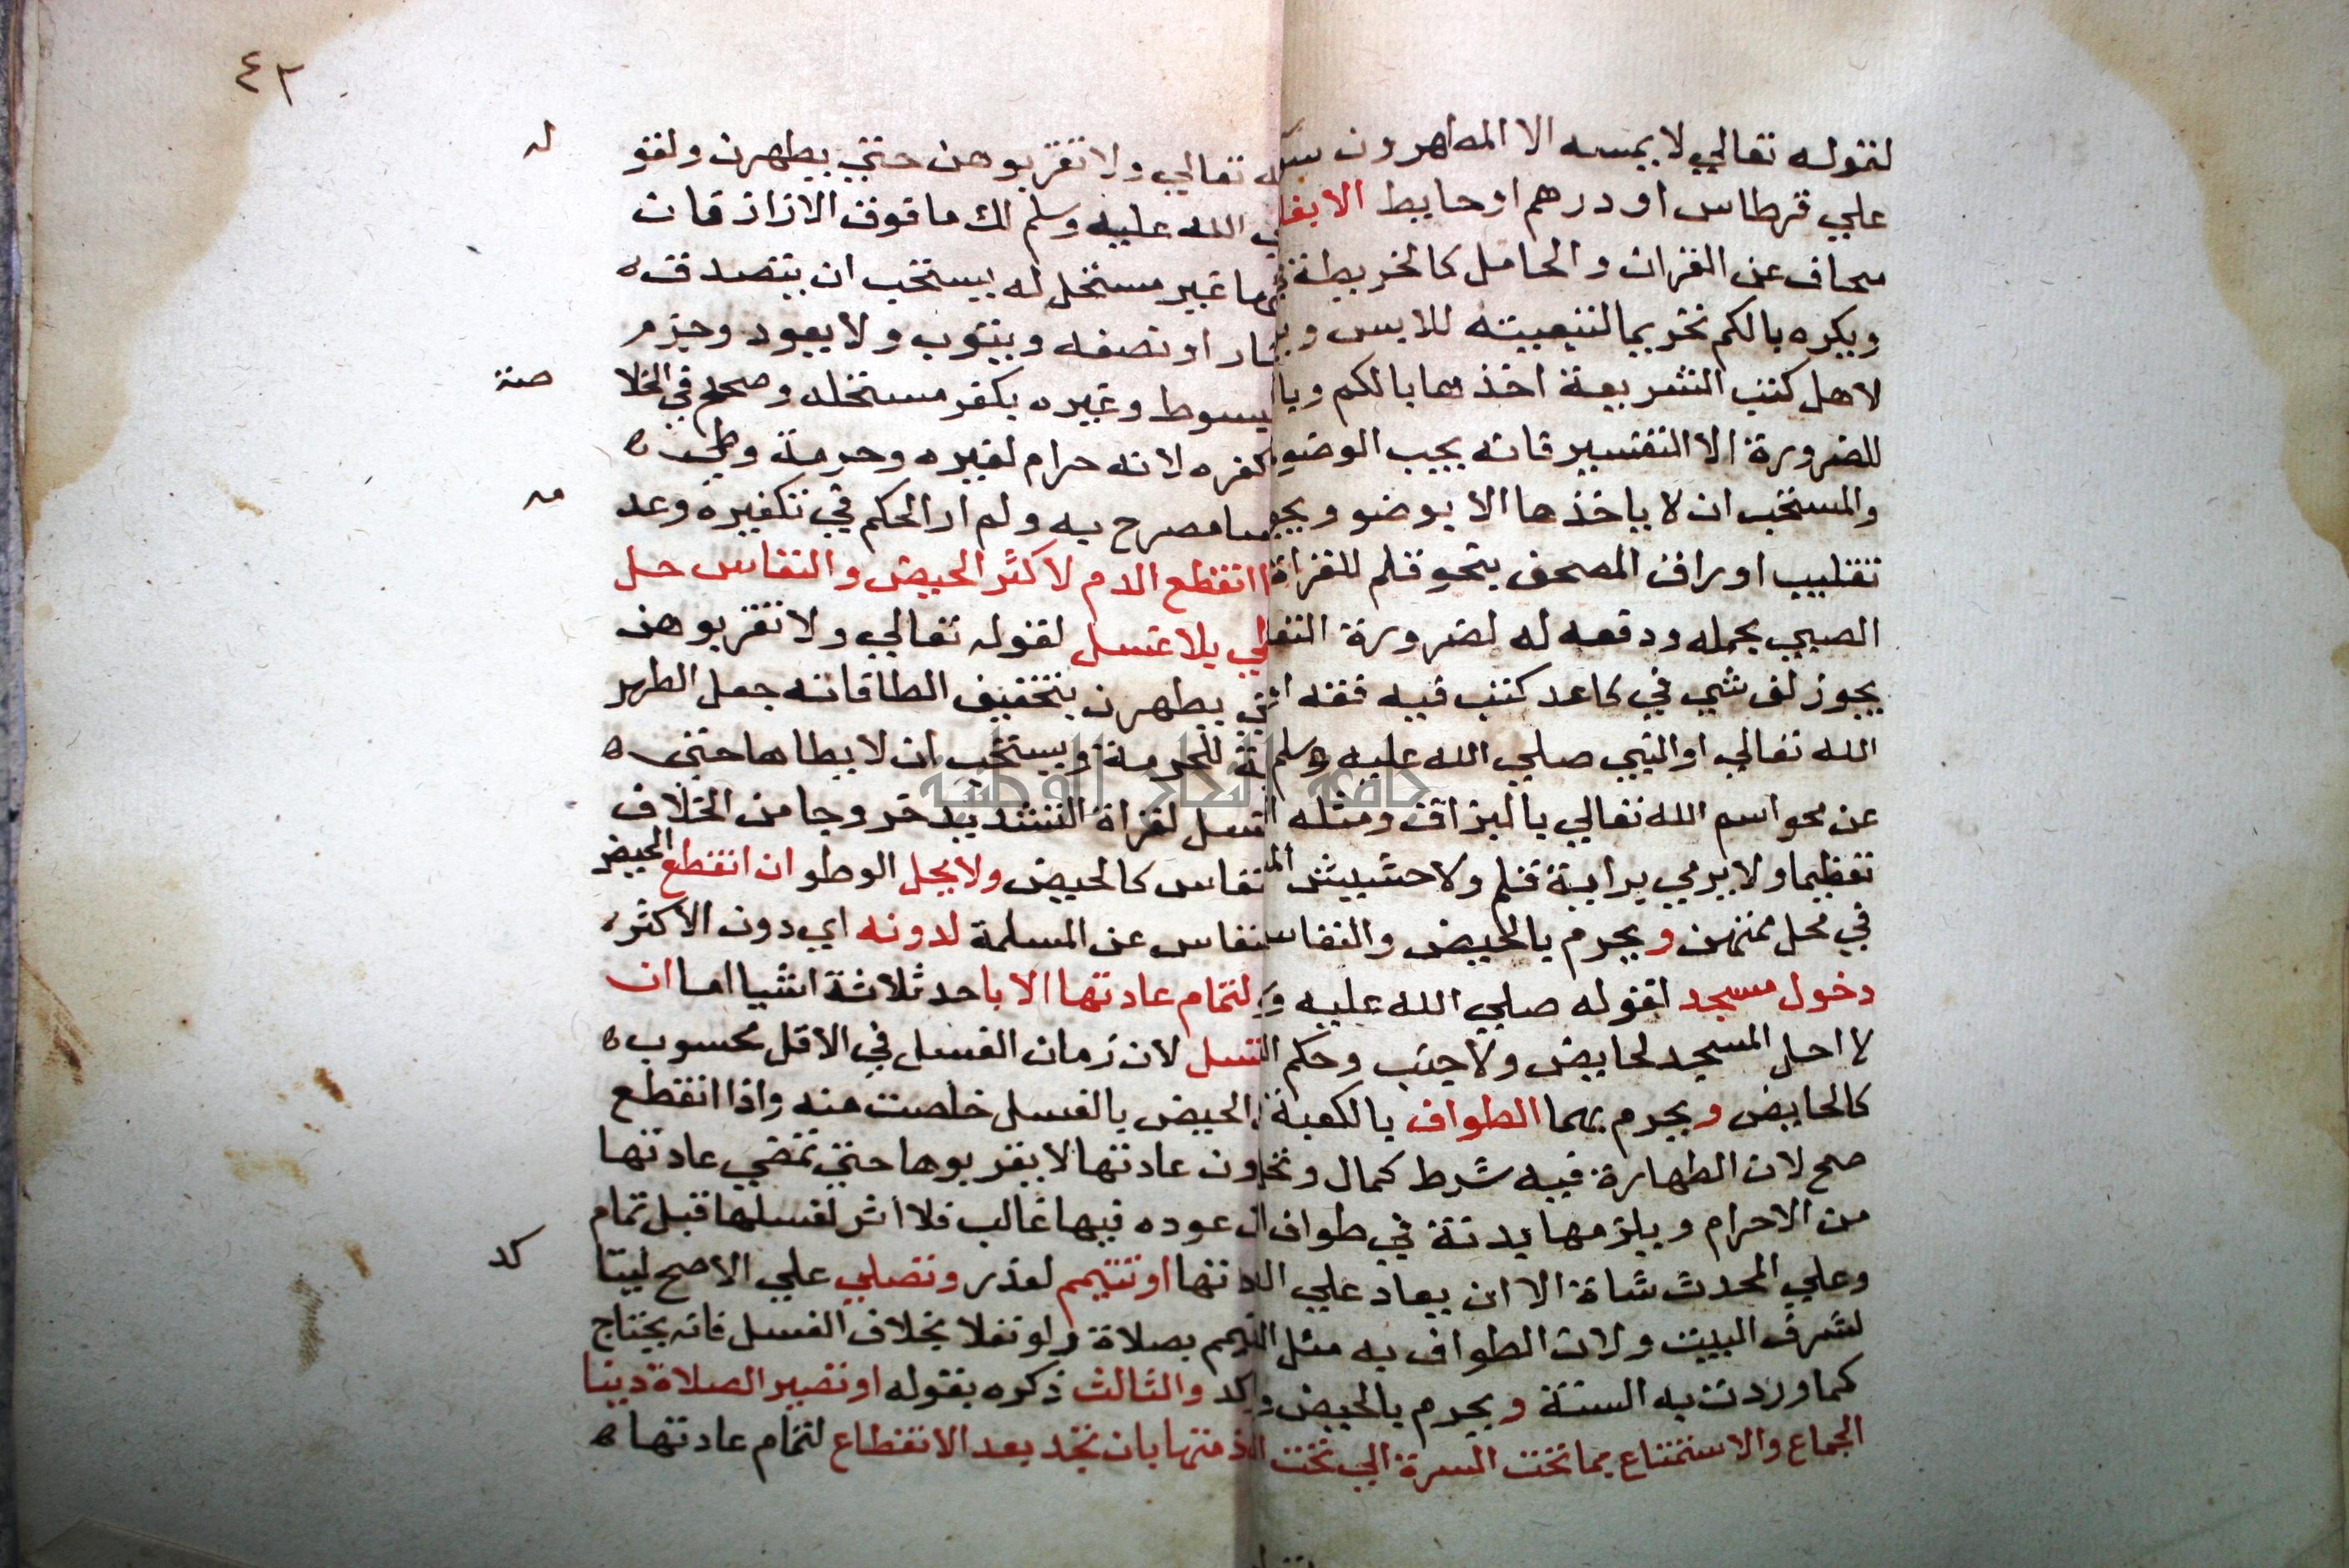 لقوله تعالي لا يمسه الا المطهرون
علي قرطاس او درهم او حايط الا بغلا
متجاف عن القران والحامل كالخريطة
ويكره بالكم تحريما لتبعيته للابس
لاهل كتب الشريعة اخذها بالكم
للضرورة الا التفسير فانه يجب الوضو
والمستحب ان لا ياخذها الا بوضو
تقليب اوراق المصحف بنحو قلم للقراة
الصبي بحمله ودفعه له لضرورة
يجوز لف شي في كاغد كتب فيه فقه
الله تعالي او النبي صلي الله عليه وسلم
عن محو اسم الله تعالي بالبزاق ومثله
تعظيما ولا يرمي براية قلم ولا حشيش
في محل ممتهن ويحرم بالحيض والنفاس
دخول مسجد لقوله صلي الله عليه
لا احل المسجد لحايض ولا جنب وحكم
كالحايض ويحرم بهما الطواف بالكعبة
صح لان الطهارة فيه شرط كمال
من الاحرام ويلزمها بدنة في طواف
وعلي المحدث شاة الا ان يعاد علي
لشرف البيت ولان الطواف به مثل
كما وردت به السنة ويحرم بالحيض
الجماع والاستمتاع بما تحت السرة الي تحت
٤٢
تعالي ولا تقربوهن حتي يطهرن ولقو له
الله عليه وسلم لك ما فوق الازار فان
غير مستحل له يستحب ان يتصدق
او نصفه ويتوب ولا يعود وجزم
وغيره بكفر مستحله وصحح في الخلا صة
كفره لانه حرام لغيره وحرمة وطي
مصرح به ولم ار الحكم في تكفيره وعد مه
انقطع الدم لاكثر الحيض والنفاس حل
بلا غسل لقوله تعالي ولا تقربوهن
يطهرن بتخفيف الطا فانه جعل الطهر
للحرمة ويستحب ان لا يطاها حتي
لقراة التشديد خروجا من الخلاف
كالحيض ولا يحل الوطو ان انقطع الحيض
عن المسلمة لدونه اي دون الاكثر
لتمام عادتها الا باحد ثلاثة اشيا اما ان
لان زمان الغسل في الاقل محسوب
الحيض بالغسل خلصت منه واذا انقطع
دون عادتها لا يقربوها حتي تمضي عادتها
عوده فيها غالب فلا اثر لغسلها قبل تمام
او تتيمم لعذر وتصلي علي الاصح ليتا كد
بصلاة ولو نفلا بخلاف الغسل فانه يحتاج
والثالث ذكره بقوله او تصير الصلاة دينا
بان تجد بعد الانقطاع لتمام عادتها